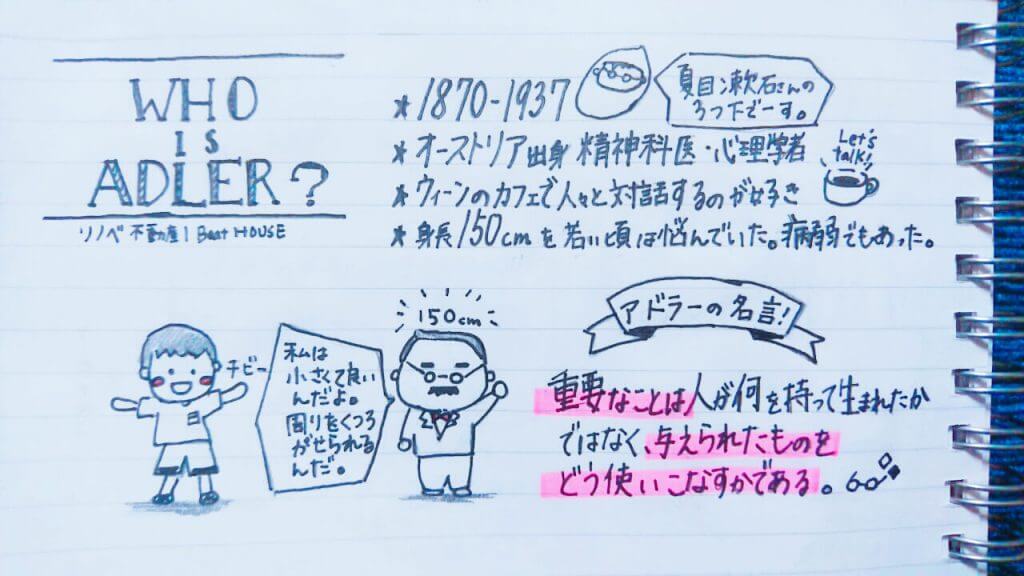 WHO
IS
ADLER?
リノベ不動産|Beat HOUSE
* 1870-1937
夏目漱石さんの
3つ下でーす。
* オーストリア出身 精神科医・心理学者
Let's
talk!
* ウィーンのカフェで人々と対話するのが好き
* 身長150cmを若い頃は悩んでいた。病弱でもあった。
チビー
私は
小さくて良い
んだよ。
周りをくつろ
がせられる
んだ。
150cm
アドラーの名言!
重要なことは人が何を持って生まれたか
ではなく、与えられたものを
どう使いこなすかである。